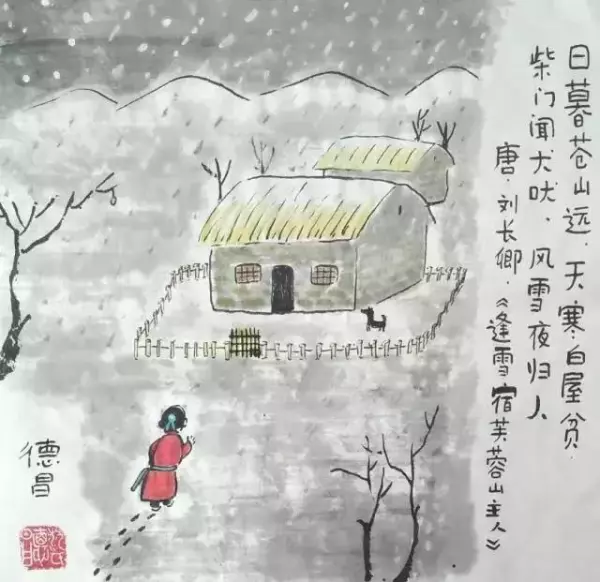 日暮苍山远，天寒白屋贫.
柴门闻犬吠，风雪夜归人
唐.刘长卿.《逢雪宿芙蓉山主人》
德昌